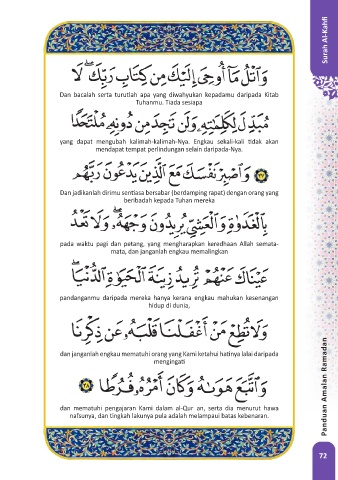 Surah Al-Kahfi
وَٱتْلُ مَآ أُوحِىَ إِلَيْكَ مِن كِتَابِ رَبِّكَ ۖ لَا
Dan bacalah serta turutlah apa yang diwahyukan kepadamu daripada Kitab
Tuhanmu. Tiada sesiapa
مُبَدِّلَ لِكَلِمَـٰتِهِۦ وَلَن تَجِدَ مِن دُونِهِۦ مُلْتَحَدًا
yang dapat mengubah kalimah-kalimah-Nya. Engkau sekali-kali tidak akan
mendapat tempat perlindungan selain daripada-Nya.
۝٢٧ وَٱصْبِرْ نَفْسَكَ مَعَ ٱلَّذِينَ يَدْعُونَ رَبَّهُم
Dan jadikanlah dirimu sentiasa bersabar (berdamping rapat) dengan orang yang
beribadah kepada Tuhan mereka
بِٱلْغَدَوٰةِ وَٱلْعَشِىِّ يُرِيدُونَ وَجْهَهُۥ ۖ وَلَا تَعْدُ
pada waktu pagi dan petang, yang mengharapkan keredhaan Allah semata-
mata, dan janganlah engkau memalingkan
عَيْنَاكَ عَنْهُمْ تُرِيدُ زِينَةَ ٱلْحَيَوٰةِ ٱلدُّنْيَا ۖ
pandanganmu daripada mereka hanya kerana engkau mahukan kesenangan
hidup di dunia,
وَلَا تُطِعْ مَنْ أَغْفَلْنَا قَلْبَهُۥ عَن ذِكْرِنَا
dan janganlah engkau mematuhi orang yang Kami ketahui hatinya lalai daripada
mengingati
وَٱتَّبَعَ هَوَىٰهُ وَكَانَ أَمْرُهُۥ فُرُطًا ۝٢٨
dan mematuhi pengajaran Kami dalam al-Qur an, serta dia menurut hawa
nafsunya, dan tingkah lakunya pula adalah melampaui batas kebenaran.
Panduan Amalan Ramadan
72